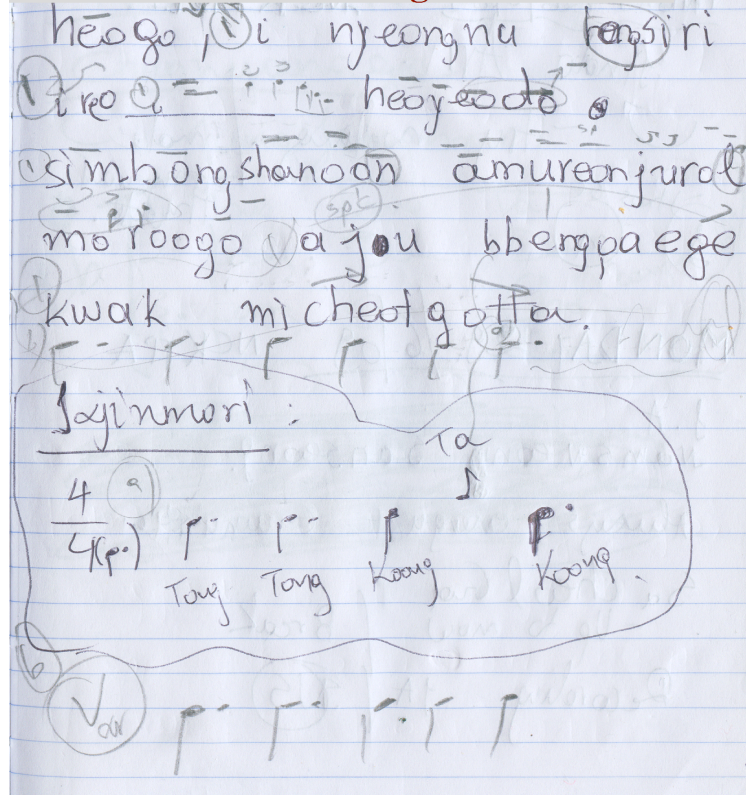 hēogo, i nyeongnu hengsiri
ireo heōyeodo.
sīmbōngshanoān āmureonjurol
mo roogo a jou bbengpaege
kwak micheotgotta.
Jajinmori :
Ta
4
4(p.)
a)
Tong Tong Koong Koong
b
Var